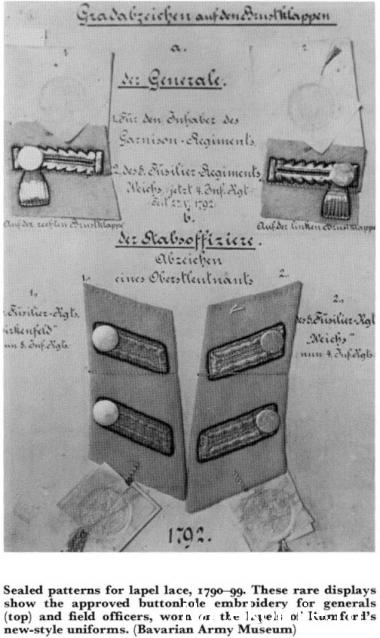 Gradabzeichen auf den Brustklappen
1.
2.
a.
der Generale.
1. Für den Inhaber des
Garnison-Regiments
2. des 8. Füsilier-Regiments
Reichs, jetzt 4. Inf. Rgt.
seit 1792.
Auf der rechten Brustklappe
Auf der linken Brustklappe
b.
der Stabsoffiziere.
Abzeichen
eines Oberstleutnants
1.
2.
1.,
Füsilier-Rgts.
"Birkenfeld"
nun 8. Inf. Rgts.
2.,
des 8. Füsilier-Rgt.
"Reichs"
nun 4. Inf. Rgts.
1792.
Sealed patterns for lapel lace, 1790–99. These rare displays
show the approved buttonhole embroidery for generals
(top) and field officers, worn on the lapels of Rumford's
new-style uniforms. (Bavarian Army Museum)